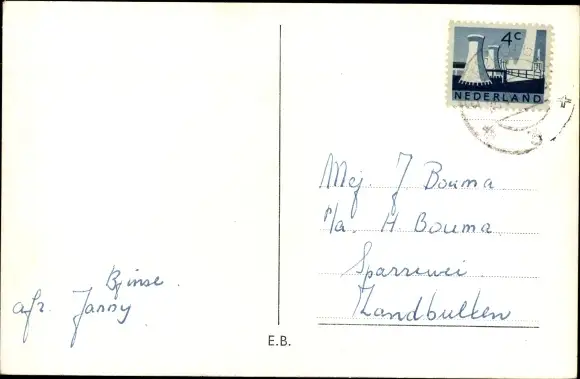 4c
NEDERLAND
Mej. J Bouma
p/a. H. Bouma.
Sparrewei.
Zandbulten
Bjinse.
afz. Janny
E.B.